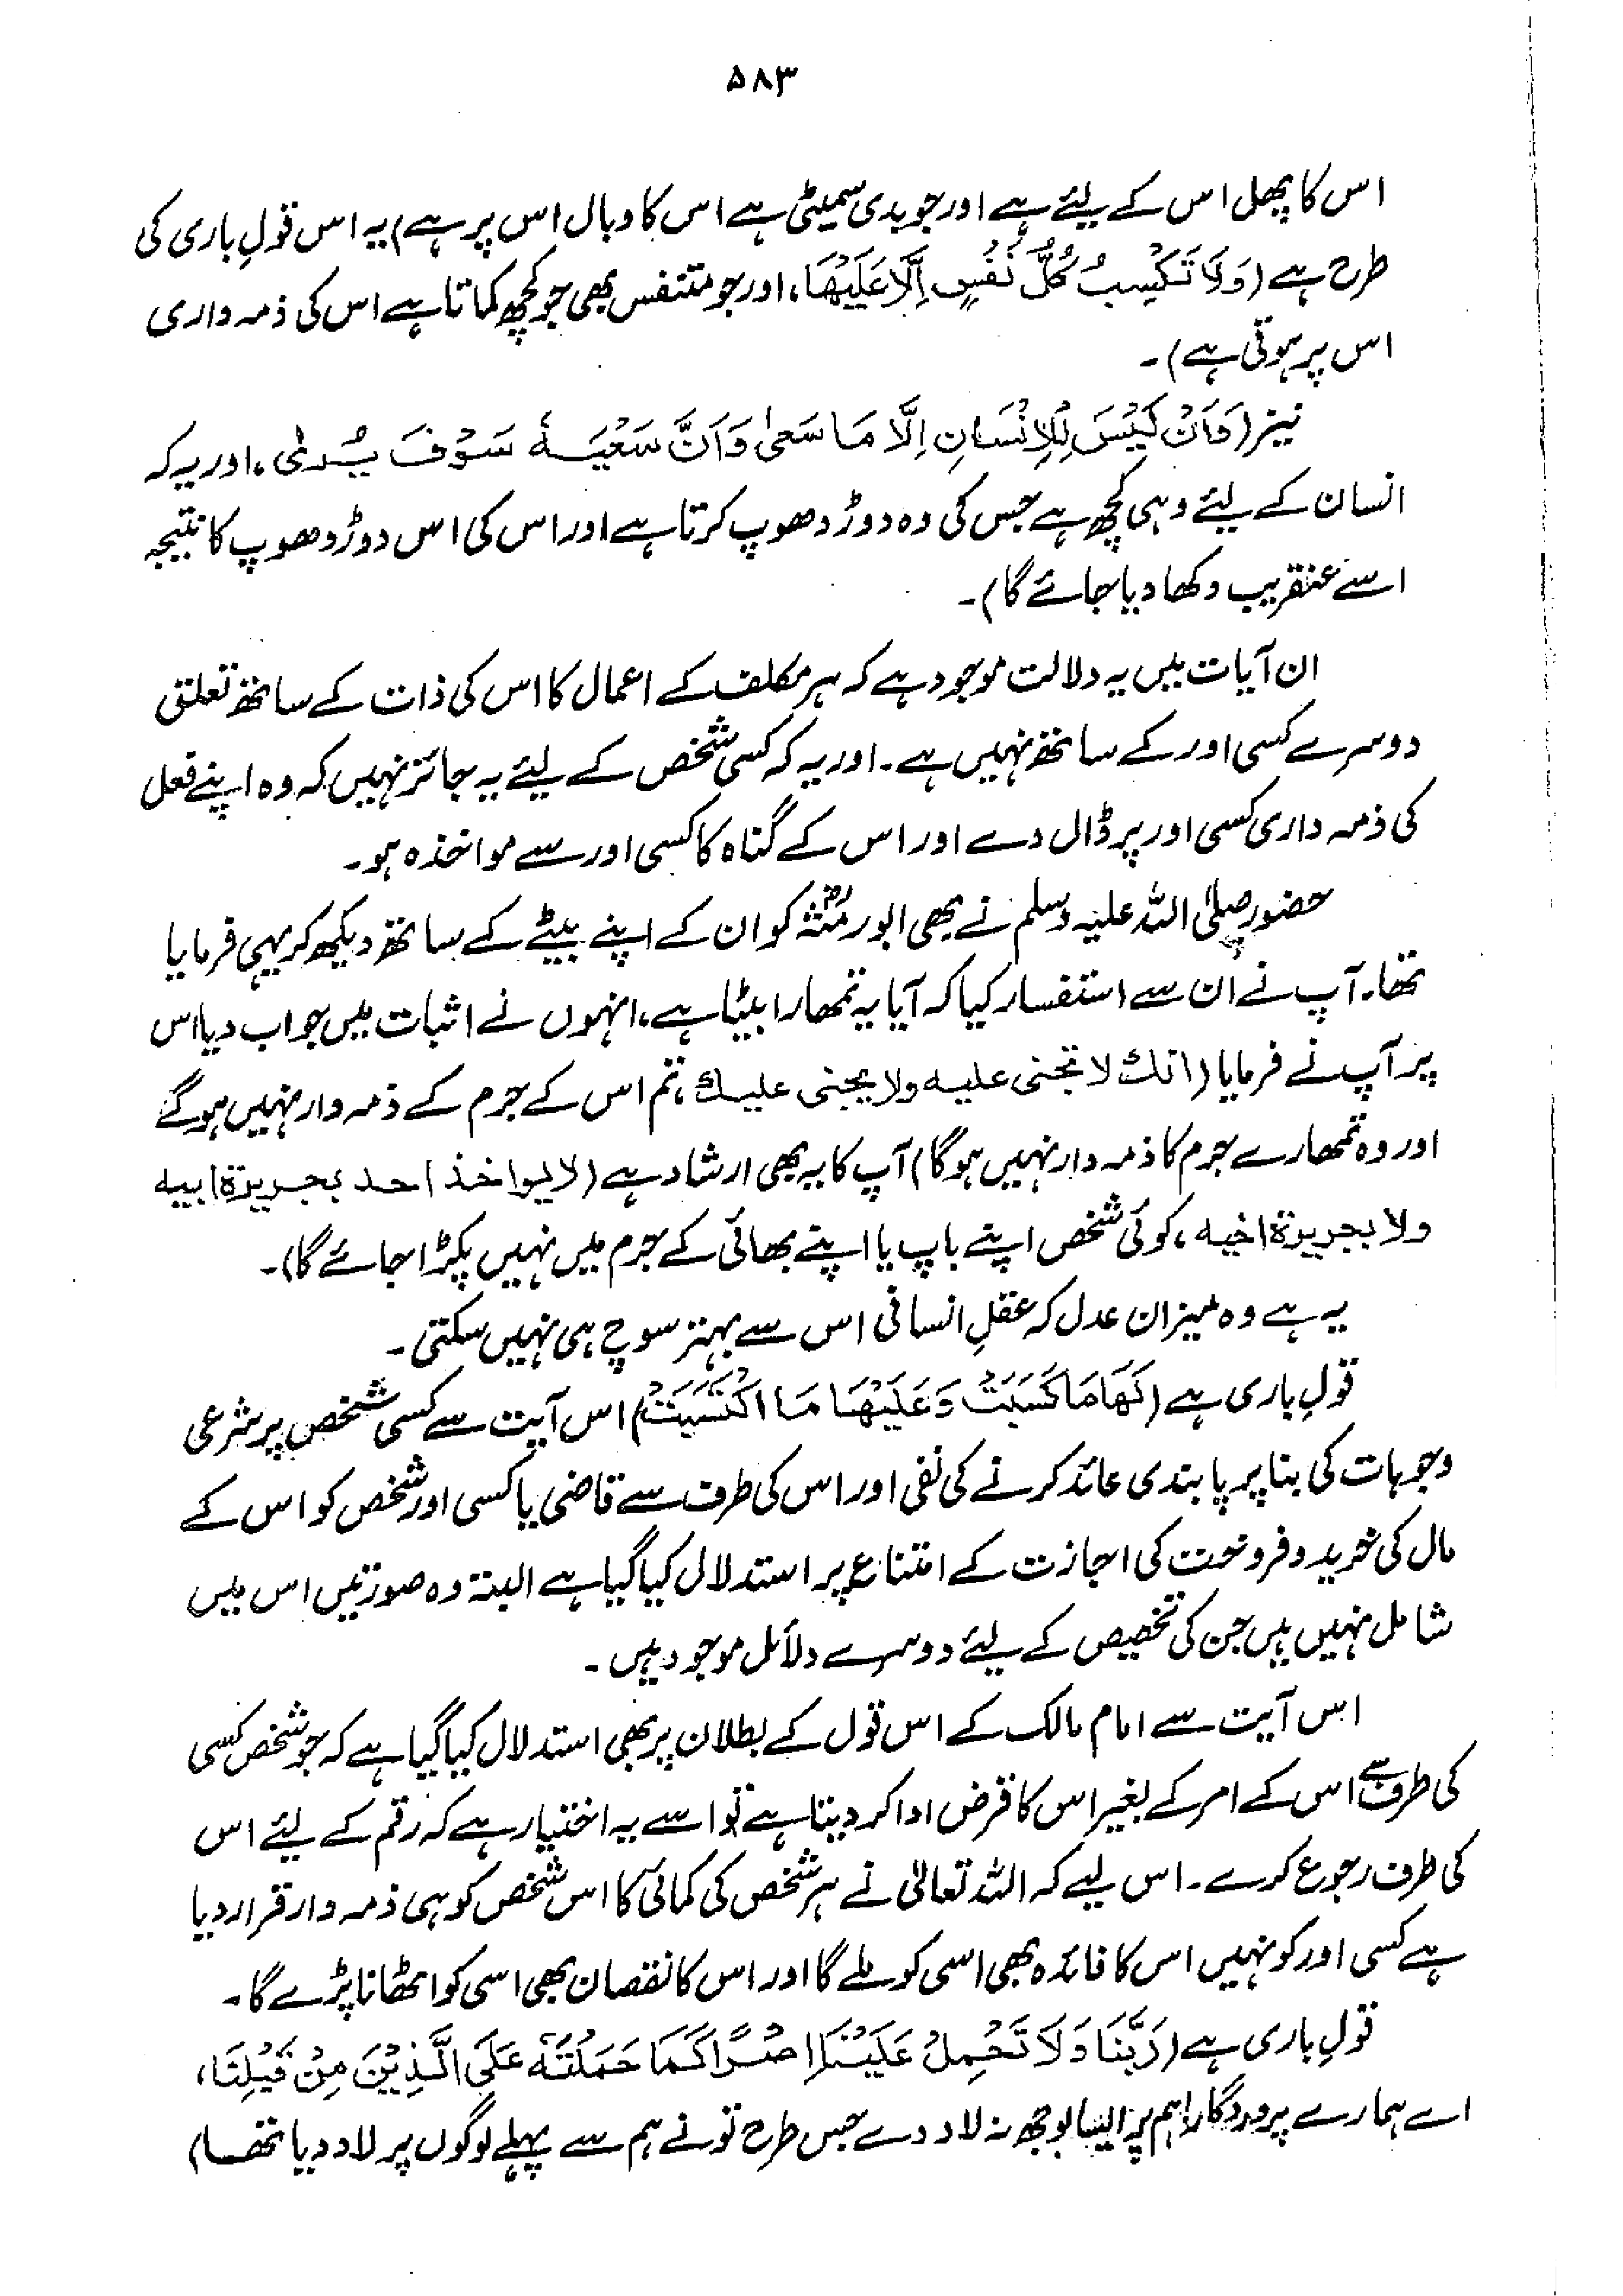 ۵۸۳
اس کا پھل اس کے لیئے ہے اور جو بدی سمیٹی ہے اس کا وبال اس پر ہے) یہ اس قولِ باری کی
طرح ہے (وَلَا تَكْسِبُ كُلُّ نَفْسٍ اِلَّا عَلَيْهَا، اور جو متنفس بھی جو کچھ کماتا ہے اس کی ذمہ داری
اس پر ہوتی ہے)۔
نیز (وَاَنْ لَيْسَ لِلْاِنْسَانِ اِلَّا مَا سَعىٰ وَاَنَّ سَعْيَهٗ سَوْفَ يُرىٰ، اور یہ کہ
انسان کے لیئے وہی کچھ ہے جس کی وہ دوڑ دھوپ کرتا ہے اور اس کی اس دوڑ دھوپ کا نتیجہ
اسے عنقریب دکھا دیا جائے گا)۔
ان آیات میں یہ دلالت موجود ہے کہ ہر مکلف کے اعمال کا اس کی ذات کے ساتھ تعلق
دوسرے کسی اور کے ساتھ نہیں ہے۔ اور یہ کہ کسی شخص کے لیئے یہ جائز نہیں کہ وہ اپنے فعل
کی ذمہ داری کسی اور پر ڈال دے اور اس کے گناہ کا کسی اور سے مواخذہ ہو۔
حضور صلی اللہ علیہ وسلم نے بھی ابورمثہؓ کو ان کے اپنے بیٹے کے ساتھ دیکھ کر یہی فرمایا
تھا۔ آپ نے ان سے استفسار کیا کہ آیا یہ تمھارا بیٹا ہے، انہوں نے اثبات میں جواب دیا اس
پر آپ نے فرمایا (انك لا تجنی عليه ولا یجنی عليك، تم اس کے جرم کے ذمہ دار نہیں ہوگے
اور وہ تمھارے جرم کا ذمہ دار نہیں ہوگا) آپ کا یہ بھی ارشاد ہے (لا یواخذ احد بجريرة ابيه
ولا بجريرة اخيه، کوئی شخص اپنے باپ یا اپنے بھائی کے جرم میں نہیں پکڑا جائے گا)۔
یہ ہے وہ میزان عدل کہ عقلِ انسانی اس سے بہتر سوچ ہی نہیں سکتی۔
قولِ باری ہے (لَهَا مَا كَسَبَتْ وَعَلَيْهَا مَا اكْتَسَبَتْ) اس آیت سے کسی شخص پر شرعی
وجوہات کی بنا پر پابندی عائد کرنے کی نفی اور اس کی طرف سے قاضی یا کسی اور شخص کو اس کے
مال کی خرید و فروخت کی اجازت کے امتناع پر استدلال کیا گیا ہے البتہ وہ صورتیں اس میں
شامل نہیں ہیں جن کی تخصیص کے لیئے دوسرے دلائل موجود ہیں۔
اس آیت سے امام مالک کے اس قول کے بطلان پر بھی استدلال کیا گیا ہے کہ جو شخص کسی
کی طرف سے اس کے امر کے بغیر اس کا قرض ادا کر دیتا ہے تو اسے یہ اختیار ہے کہ رقم کے لیئے اس
کی طرف رجوع کرے۔ اس لیے کہ اللہ تعالیٰ نے ہر شخص کی کمائی کا اس شخص کو ہی ذمہ دار قرار دیا
ہے کسی اور کو نہیں اس کا فائدہ بھی اسی کو ملے گا اور اس کا نقصان بھی اسی کو اٹھانا پڑے گا۔
قولِ باری ہے (رَبَّنَا وَلَا تَحْمِلْ عَلَيْنَا اِصْرًا كَمَا حَمَلْتَهٗ عَلَى الَّذِيْنَ مِنْ قَبْلِنَا،
اے ہمارے پروردگار! ہم پر ایسا بوجھ نہ لاد دے جس طرح تو نے ہم سے پہلے لوگوں پر لاد دیا تھا)